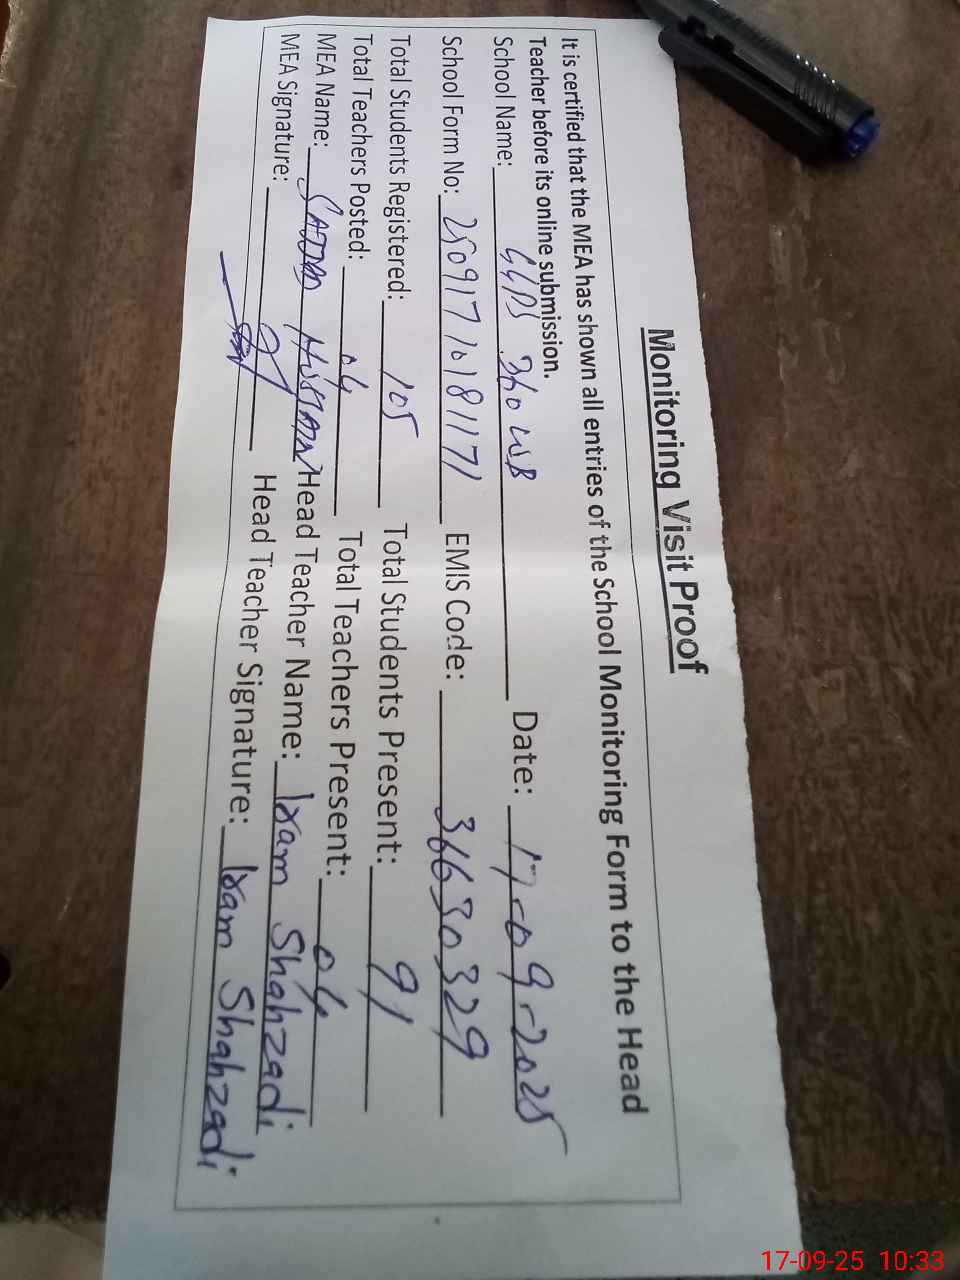 Monitoring Visit Proof
It is certified that the MEA has shown all entries of the School Monitoring Form to the Head
Teacher before its online submission.
School Name: GGPS 360 WB Date: 17-09-2025
School Form No: 25091710181171 EMIS Code: 36630329
Total Students Registered: 105 Total Students Present: 91
Total Teachers Posted: 04 Total Teachers Present: 04
MEA Name: Head Teacher Name: Iram Shahzadi
MEA Signature: Head Teacher Signature: Iram Shahzadi
17-09-25 10:33